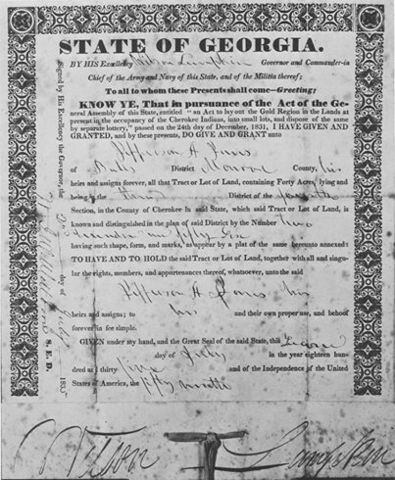 STATE OF GEORGIA.
BY HIS Excellency Wilson Lumpkin Governor and Commander-in
Chief of the Army and Navy of this State, and of the Militia thereof;
To all to whom these Presents shall come—Greeting;
KNOW YE, That in pursuance of the Act of the Ge-
neral Assembly of this State, entitled "an Act to lay out the Gold Region in the Lands at
present in the occupancy of the Cherokee Indians, into small lots, and dispose of the same
by separate lottery," passed on the 24th day of December, 1831, I HAVE GIVEN AND
GRANTED, and by these presents, DO GIVE AND GRANT unto
Jefferson A Jones
of District Monroe County, his
heirs and assigns forever, all that Tract or Lot of Land, containing Forty Acres, lying and
being in the Third District of the fourth
Section, in the County of Cherokee in said State, which said Tract or Lot of Land, is
known and distinguished in the plan of said District by the Number two
hundred
having such shape, form, and marks, as appear by a plat of the same hereunto annexed:
TO HAVE AND TO HOLD the said Tract or Lot of Land, together with all and singu-
lar the rights, members, and appurtenances thereof, whatsoever, unto the said
Jefferson A Jones his
heirs and assigns; to his and their own proper use, and behoof
forever in fee simple.
GIVEN under my hand, and the Great Seal of the said State, this
day of July in the year eighteen hun-
dred and thirty five and of the Independence of the United
States of America, the fifty ninth
Wilson Lumpkin
Signed by His Excellency the Governor, the
day of July 1835
S. E. D.